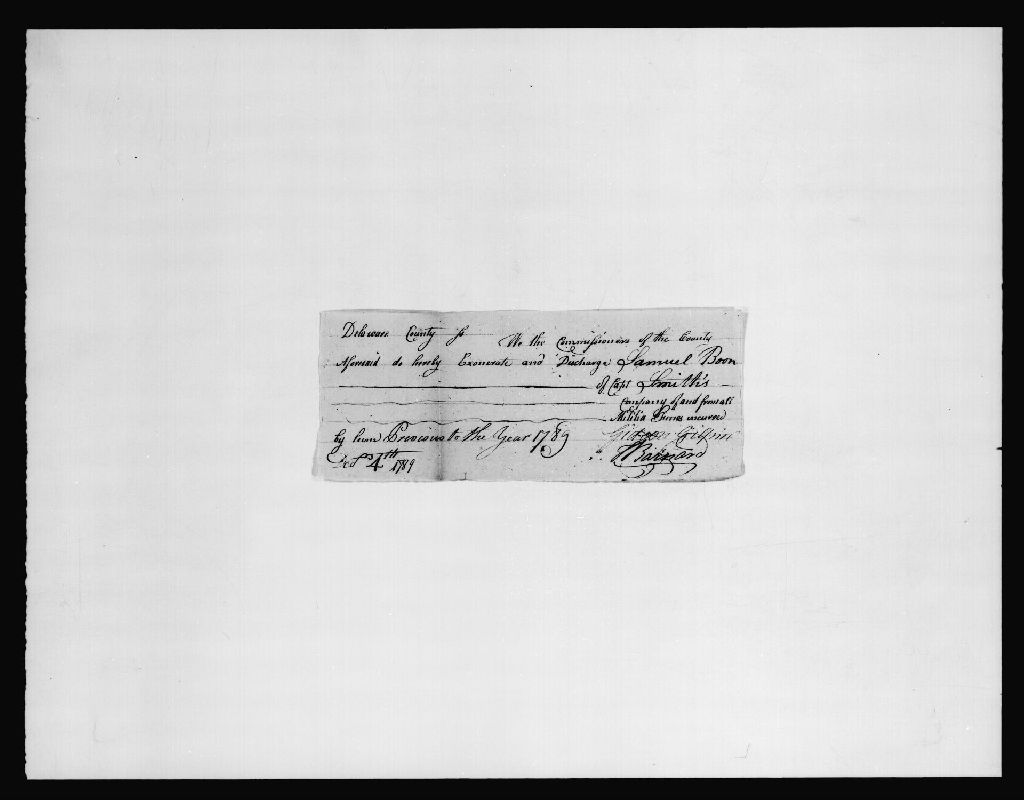 Delaware County ss We the Commissioners of the County
Aforesaid do hereby Exonerate and Discharge Samuel Boon
of Capt Smith's
Company of and from all
Militia Fines incurred
by him Previous to the Year 1789
Decr 4th 1789
Gideon Gilpin
Barnard